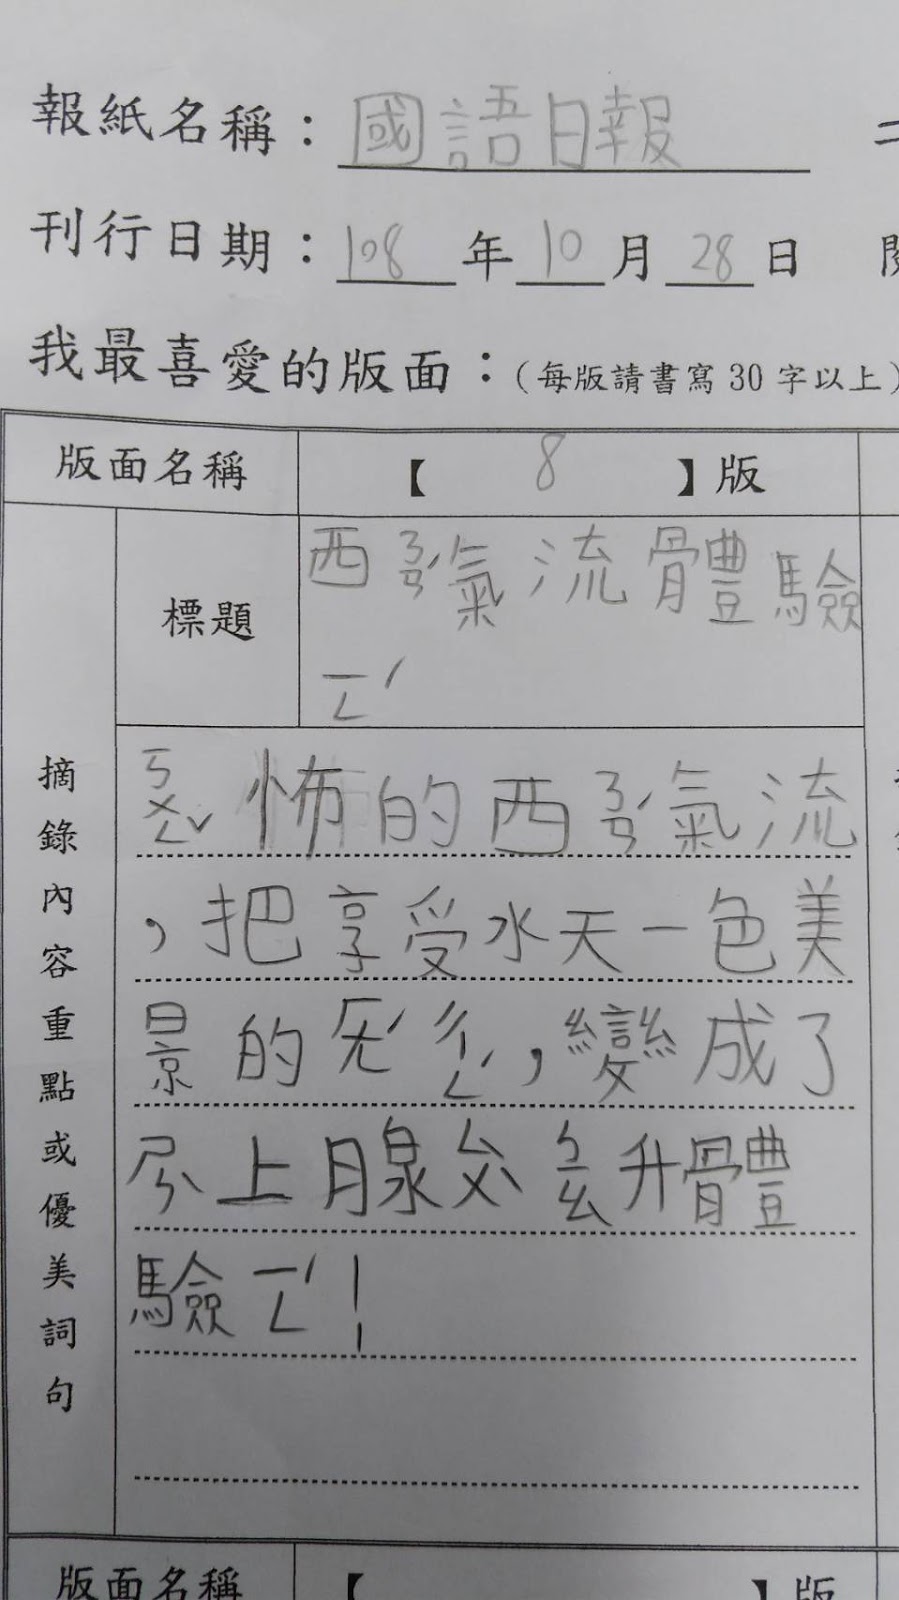 報紙名稱：國語日報
刊行日期：108年10月28日
我最喜愛的版面：（每版請書寫30字以上）
版面名稱【8】版
標題
西ㄋㄢˊ氣流體驗
ㄧㄥˊ
摘錄內容重點或優美詞句
ㄎㄨㄥˇ怖的西ㄋㄢˊ氣流
，把享受水天一色美
景的ㄏㄤˊㄔㄥˊ，變成了
ㄕㄣˋ上腺ㄙㄨˋㄅㄧㄠ升體
驗ㄧㄥˊ！
版面名稱【】版